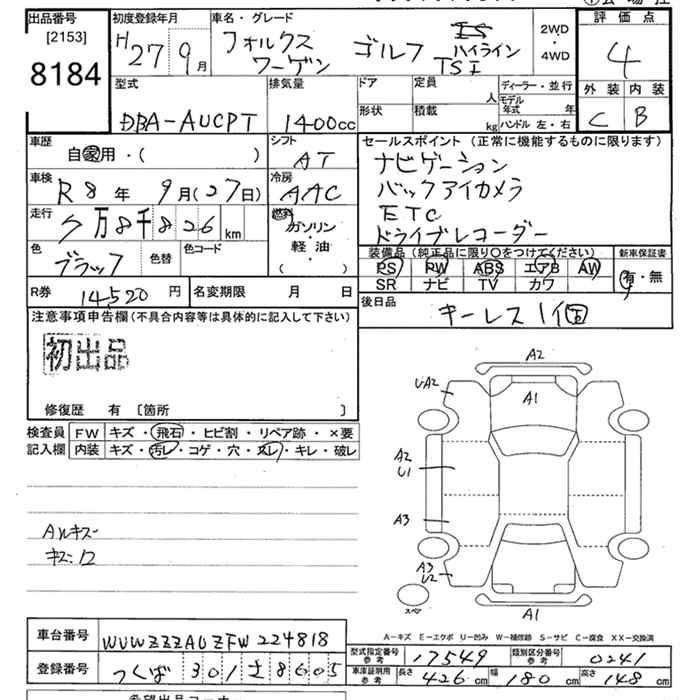 出品番号
[2153]
8184
初度登録年月
H27 9月
車名・グレード
フォルクスワーゲン ゴルフ TSI ハイライン
2WD・4WD
評価点
4
外装 内装
C B
型式
DBA-AUCPT
排気量
1400cc
ドア
形状
定員
人
積載
kg
ディーラー・並行
モデル年式 年
ハンドル 左・右
車歴
自家用・( )
シフト
AT
車検
R8年 9月(27日)
冷房
AAC
走行
万8千826km
燃料
ガソリン・軽・油・( )
色
ブラック
色替
色コード
セールスポイント(正常に機能するものに限ります)
ナビゲーション
バックアイカメラ
ETC
ドライブレコーダー
装備品(純正品に限り○をつけてください)
PS PW ABS エアB AW
SR ナビ TV カワ
新車保証書
有・無
R券
14520円
名変期限 月 日
後日品
キーレス1個
注意事項申告欄(不具合内容等は具体的に記入して下さい)
初出品
修復歴 有 [箇所 ]
検査員記入欄
FW キズ・飛石・ヒビ割・リペア跡・×要
内装 キズ・汚レ・コゲ・穴・スレ・キレ・破レ
Aルキズ
キズ:12
A2
UA2
A1
A2
U1
A3
A3
U2
スペア
A1
A-キズ E-エクボ U-凹み W-補修跡 S-サビ C-腐食 XX-交換済
車台番号
WVWZZZAUZFW224818
登録番号
つくば 301 8605
型式指定番号 参考
17549
類別区分番号 参考
0241
車庫証明用 参考
長さ 426cm 幅 180cm 高さ 148cm